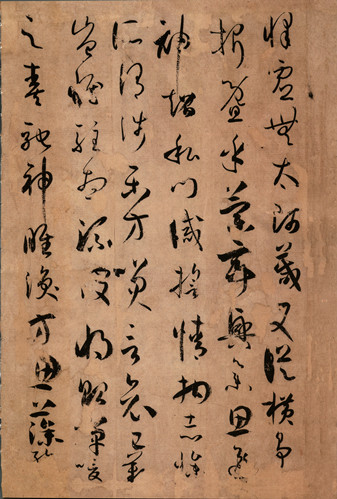 懌虚無太師箴又縱横争
折暨乎蘭亭興集思逸
神超私門誡誓情拘志慘
所謂涉樂方笑言哀已歎
豈惟駐想流波將貽嘽噯
之奏馳神睢渙方思藻繪